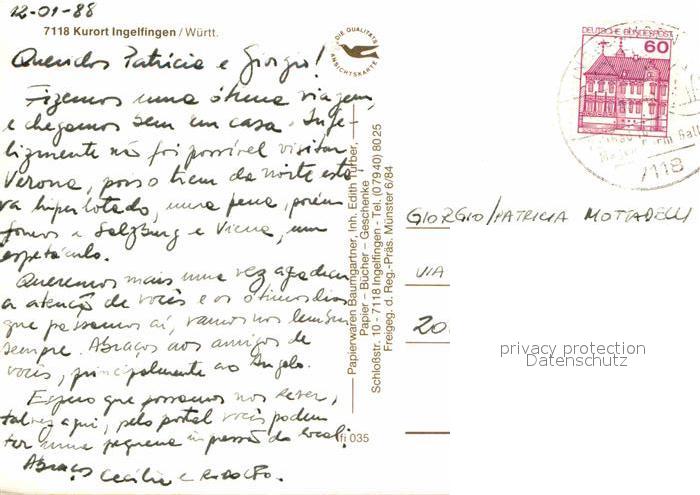 12-01-88
7118 Kurort Ingelfingen / Württ.
DIE QUALITÄTS
ANSICHTSKARTE
Queridos Patrícia e Giorgio!
Fizemos uma ótima viagem,
e chegamos bem em casa. Infe-
lizmente não foi possível visitar
Verona, pois o trem da noite esta
va hiperlotado, uma pena, porém
fomos a Salzburg e Viena, um
espetáculo.
Queremos mais uma vez agradecer
a atenção de vocês e os ótimos dias
que passamos aí, vamos nos lembrar
sempre. Abraços aos amigos de
vocês, principalmente ao Angelo.
Espero que possamos nos rever,
talvez aqui, pelo postal vocês podem
ter uma pequena impressão do local;
Abraços Cecília e Rodolfo.
Papierwaren Baumgartner, Inh. Edith Türber,
Papier – Bücher – Geschenke
Schloßstr. 10 - 7118 Ingelfingen - Tel. (0 79 40) 80 25
Freigeg. d. Reg.-Präs. Münster 6/84
fi 035
DEUTSCHE BUNDESPOST
60
7118
GIORGIO/PATRICIA MOTTADELLI
VIA
20
privacy protection
Datenschutz